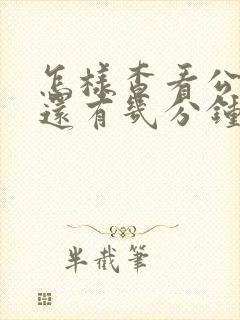 怎樣查看公
還有幾分鐘
半截筆